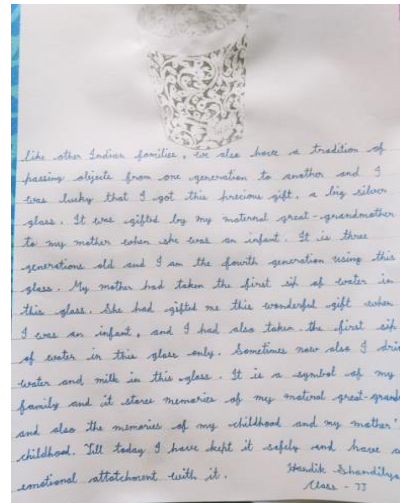 like other Indian families, we also have a tradition of
passing objects from one generation to another and I
was lucky that I got this precious gift, a big silver
glass. It was gifted by my maternal great-grandmother
to my mother when she was an infant. It is three
generations old and I am the fourth generation using this
glass. My mother had taken the first sip of water in
this glass. She had gifted me this wonderful gift when
I was an infant, and I had also taken the first sip
of water in this glass only. Sometimes now also I drin
water and milk in this glass. It is a symbol of my
family and it stores memories of my maternal great-grand
and also the memories of my childhood and my mother'
childhood. Till today I have kept it safely and have a
emotional attatchment with it.
Hardik Shandilya
Class -